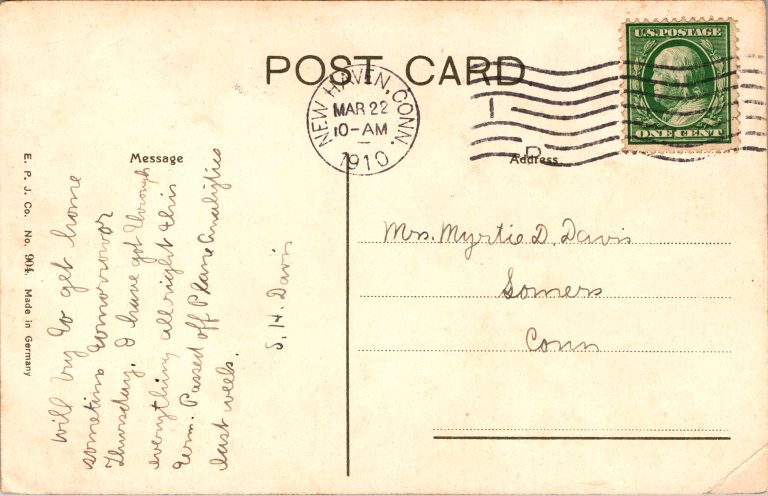 POST CARD
U.S. POSTAGE
ONE CENT
NEW HAVEN, CONN.
MAR 22
10-AM
1910
1
D
Message
Address
E. P. J. Co. No. 904. Made in Germany
will try to get home
sometime tomorrow or
Thursday. I have got through
everything allright this
term. Passed off Plane Analytics
last week.
S. H. Davis
Mrs. Myrtie D. Davis
Somers
Conn